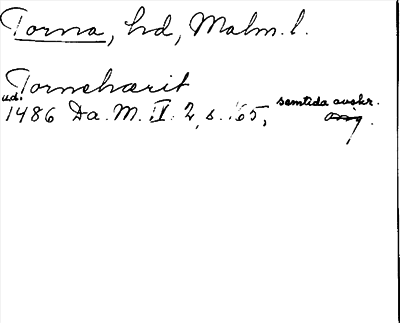 Torna, hd, Malm. l.
Tornehærit
ud. 1486 Da. M. II. 2, s. 165, samtida avskr.
orig.